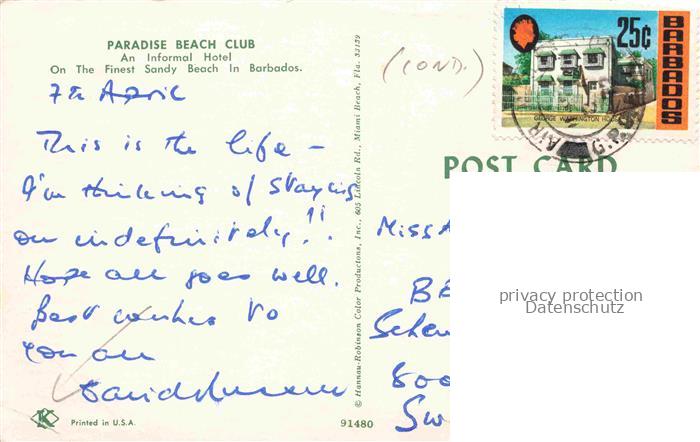 PARADISE BEACH CLUB
An Informal Hotel
On The Finest Sandy Beach In Barbados.
7th April
This is the life –
I'm thinking of staying
on indefinitely!!
Hope all goes well.
Best wishes to
you all
© Hannau-Robinson Color Productions, Inc., 605 Lincoln Rd., Miami Beach, Fla. 33139
K
Printed in U.S.A.
91480
(COND.)
25¢
BARBADOS
GEORGE WASHINGTON HOUSE
AIR
G.P.O.
POST CARD
Miss A
BB
800
Sw
privacy protection
Datenschutz